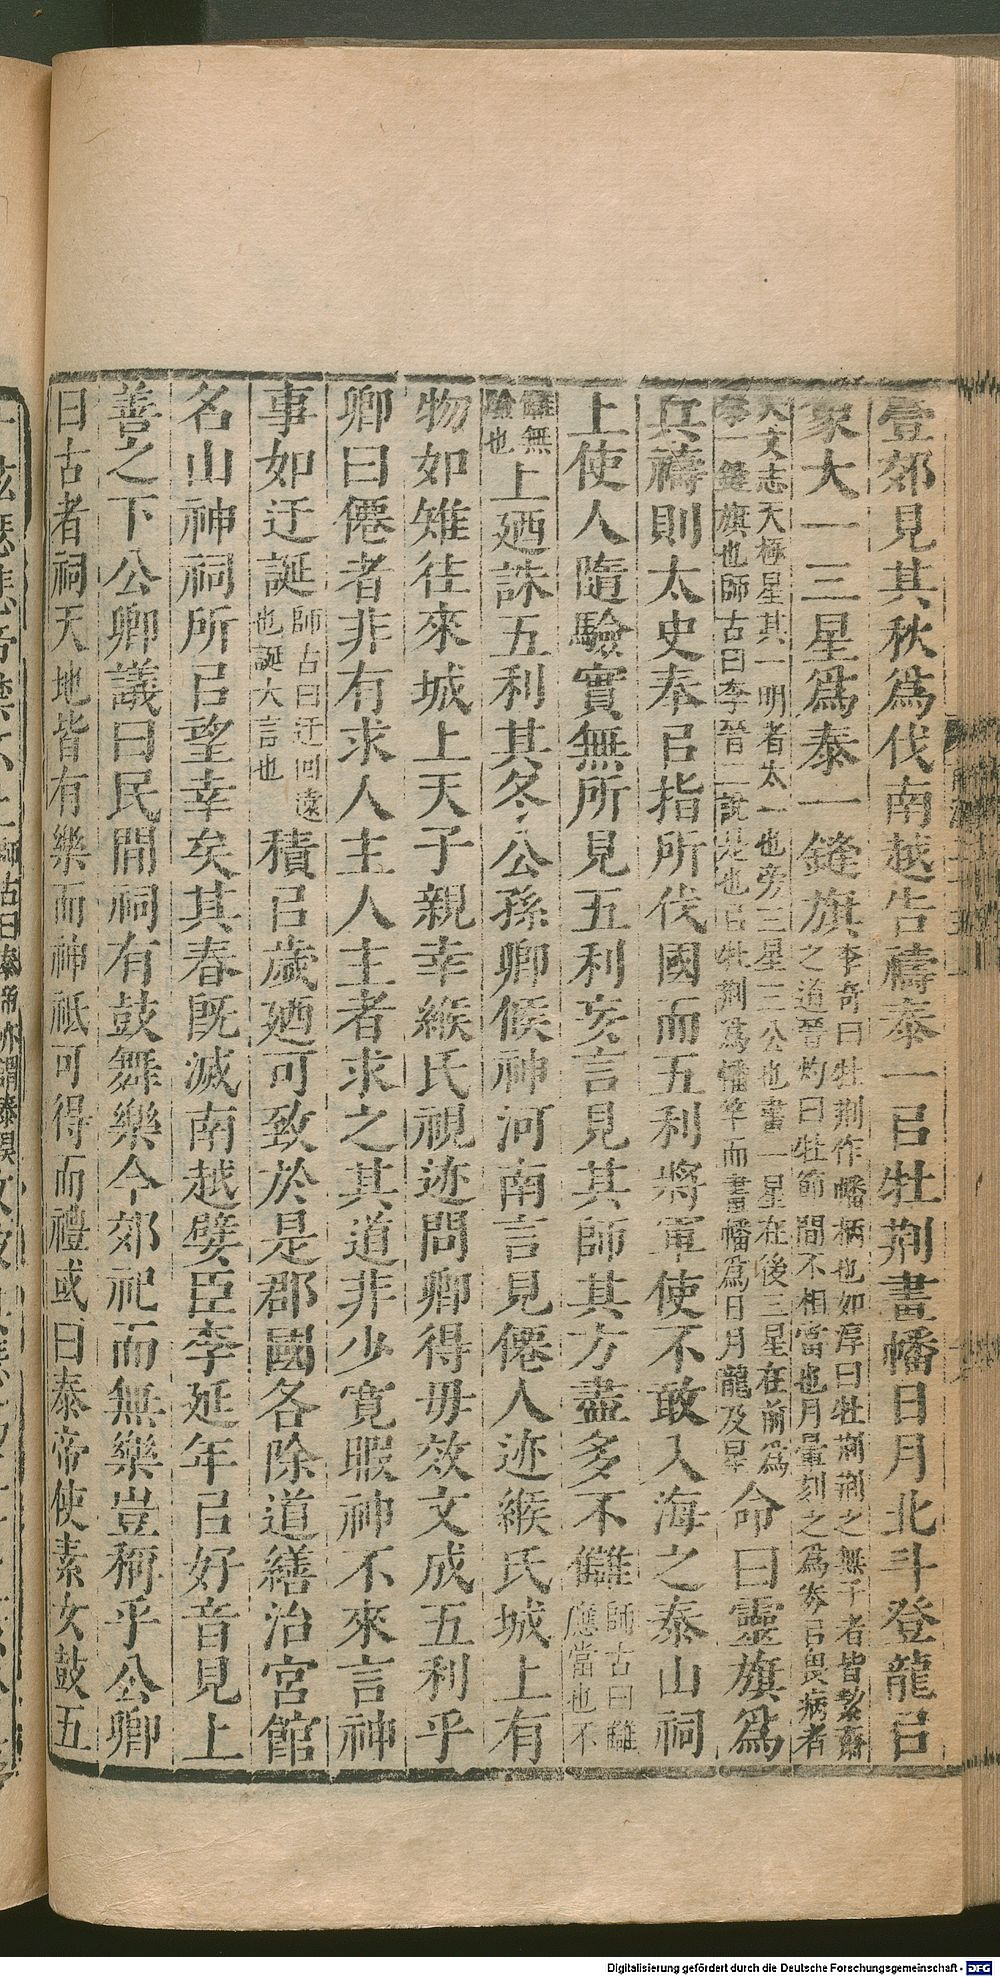 壹郊見其秋爲伐南越告禱泰一㠯牡荆畫幡日月北斗登龍㠯
象大一三星爲泰一鏠旗李奇曰牡荆作幡柄也如淳曰牡荆荆之無子者皆絜齋之道晉灼曰牡節間不相當也月暈刻之爲券㠯畏病者
天文志天極星其一明者太一也旁三星三公也畫一星在後三星在前爲泰一鏠旗也師古曰李晉二說是也㠯牡荆爲幡竿而畫幡爲日月龍及星命曰靈旗爲
兵禱則太史奉㠯指所伐國而五利將軍使不敢入海之泰山祠
上使人隨驗實無所見五利妄言見其師其方盡多不讎師古曰讎應當也不
讎無驗也上廼誅五利其冬公孫卿候神河南言見僊人迹緱氏城上有
物如雉往來城上天子親幸緱氏視迹問卿得毋效文成五利乎
卿曰僊者非有求人主人主者求之其道非少寬暇神不來言神
事如迂誕師古曰迂回遠也誕大言也積㠯歲廼可致於是郡國各除道繕治宮館
名山神祠所㠯望幸矣其春既滅南越嬖臣李延年㠯好音見上
善之下公卿議曰民間祠有鼓舞樂今郊祀而無樂豈稱乎公卿
曰古者祠天地皆有樂而神祇可得而禮或曰泰帝使素女鼓五
Digitalisierung gefördert durch die Deutsche Forschungsgemeinschaft - DFG